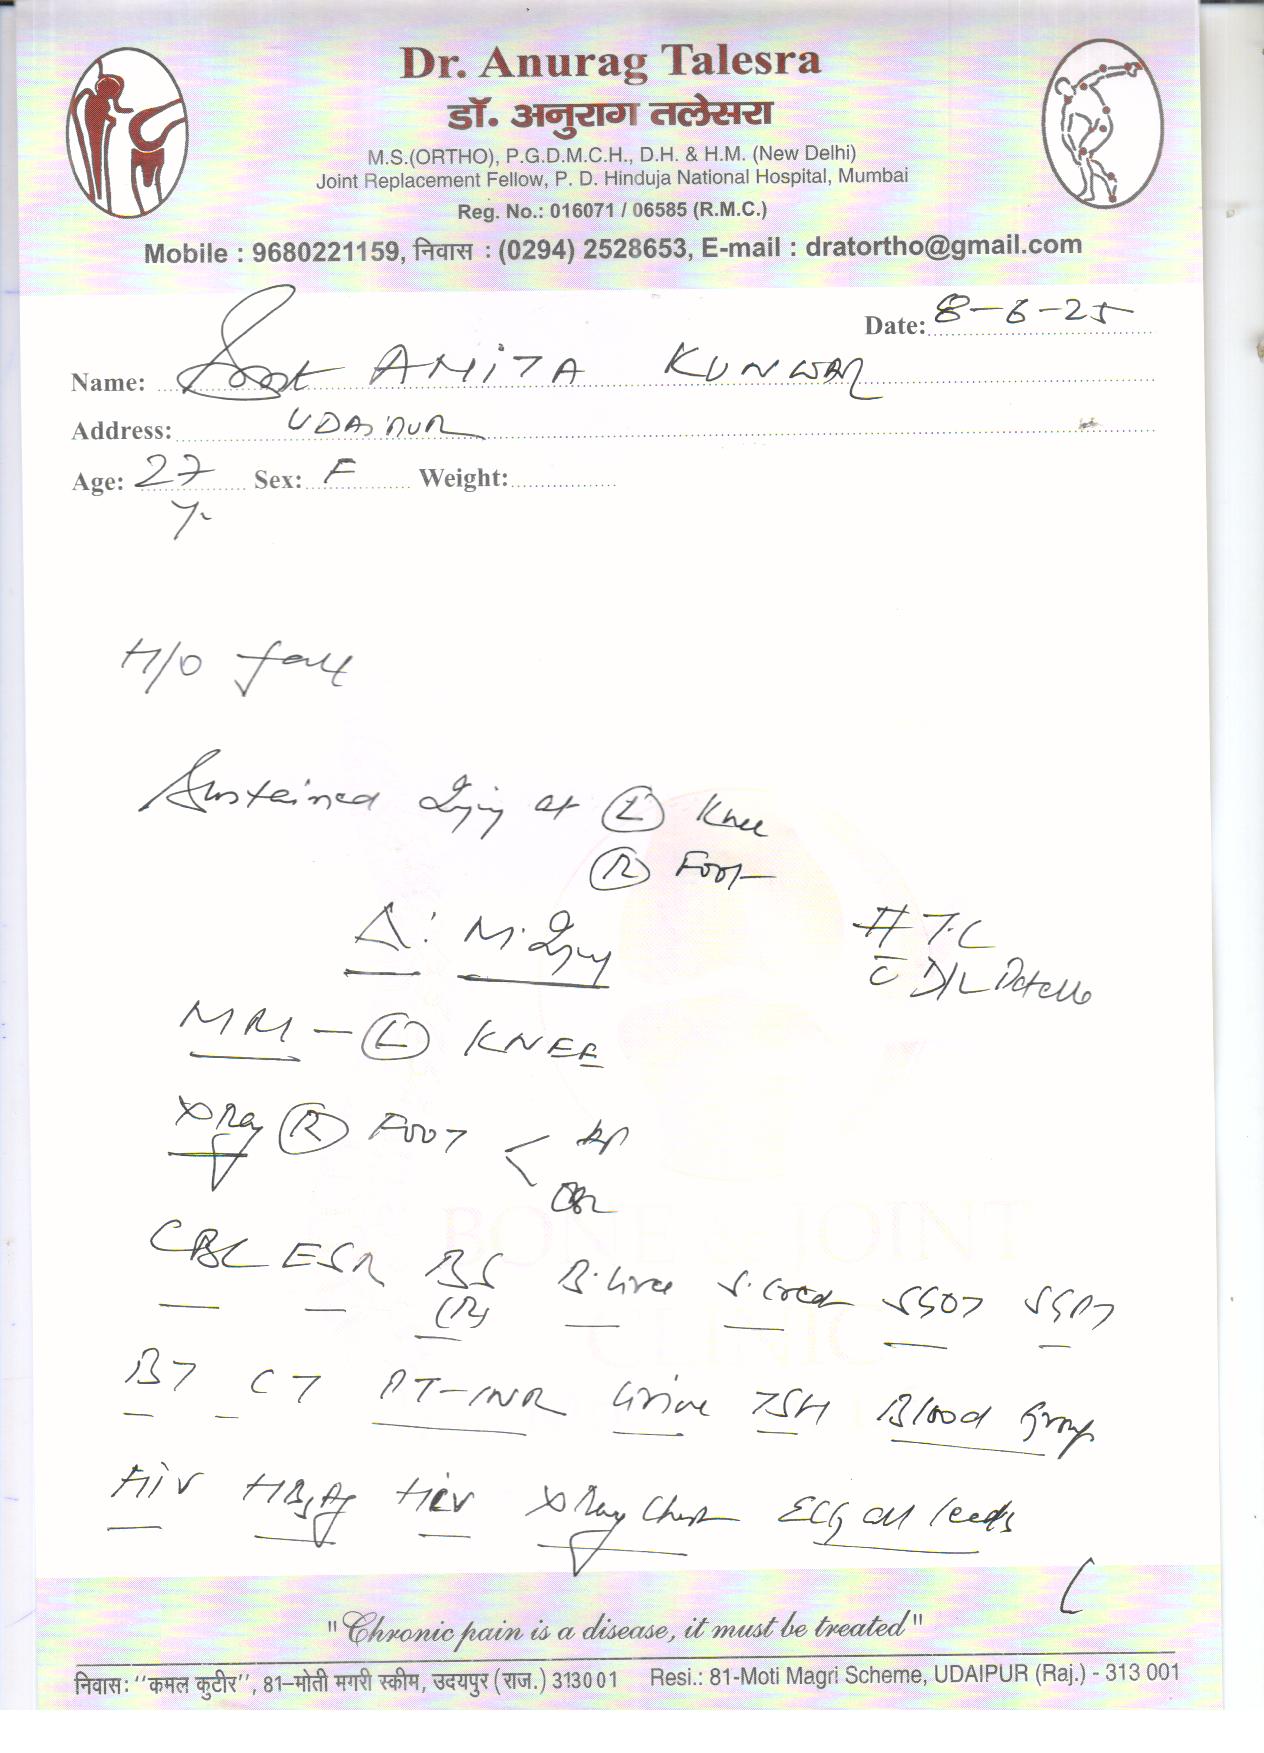 Dr. Anurag Talesra
डॉ. अनुराग तलेसरा
M.S.(ORTHO), P.G.D.M.C.H., D.H. & H.M. (New Delhi)
Joint Replacement Fellow, P. D. Hinduja National Hospital, Mumbai
Reg. No.: 016071 / 06585 (R.M.C.)
Mobile : 9680221159, निवास : (0294) 2528653, E-mail : dratortho@gmail.com
Date: 8-6-25
Name: AMITA KUNWAR
Address: UDAIPUR
Age: 27 Sex: F Weight:
Yr
H/O fall
Sustained Injury at (L) Knee
(R) Foot
Δ: M. Injury # T.C
c̄ D/L Patella
MRI - (L) KNEE
X Ray (R) FOOT < AP
OBL
CBC ESR BS B. Urea S. Creat SGOT SGPT
(R)
BT CT PT-INR Urine TSH Blood Group
HiV HBsAg HCV X Ray Chest ECG all leeds
BONE & JOINT
CLINIC
"Chronic pain is a disease, it must be treated"
निवास: "कमल कुटीर", 81-मोती मगरी स्कीम, उदयपुर (राज.) 313001 Resi.: 81-Moti Magri Scheme, UDAIPUR (Raj.) - 313 001